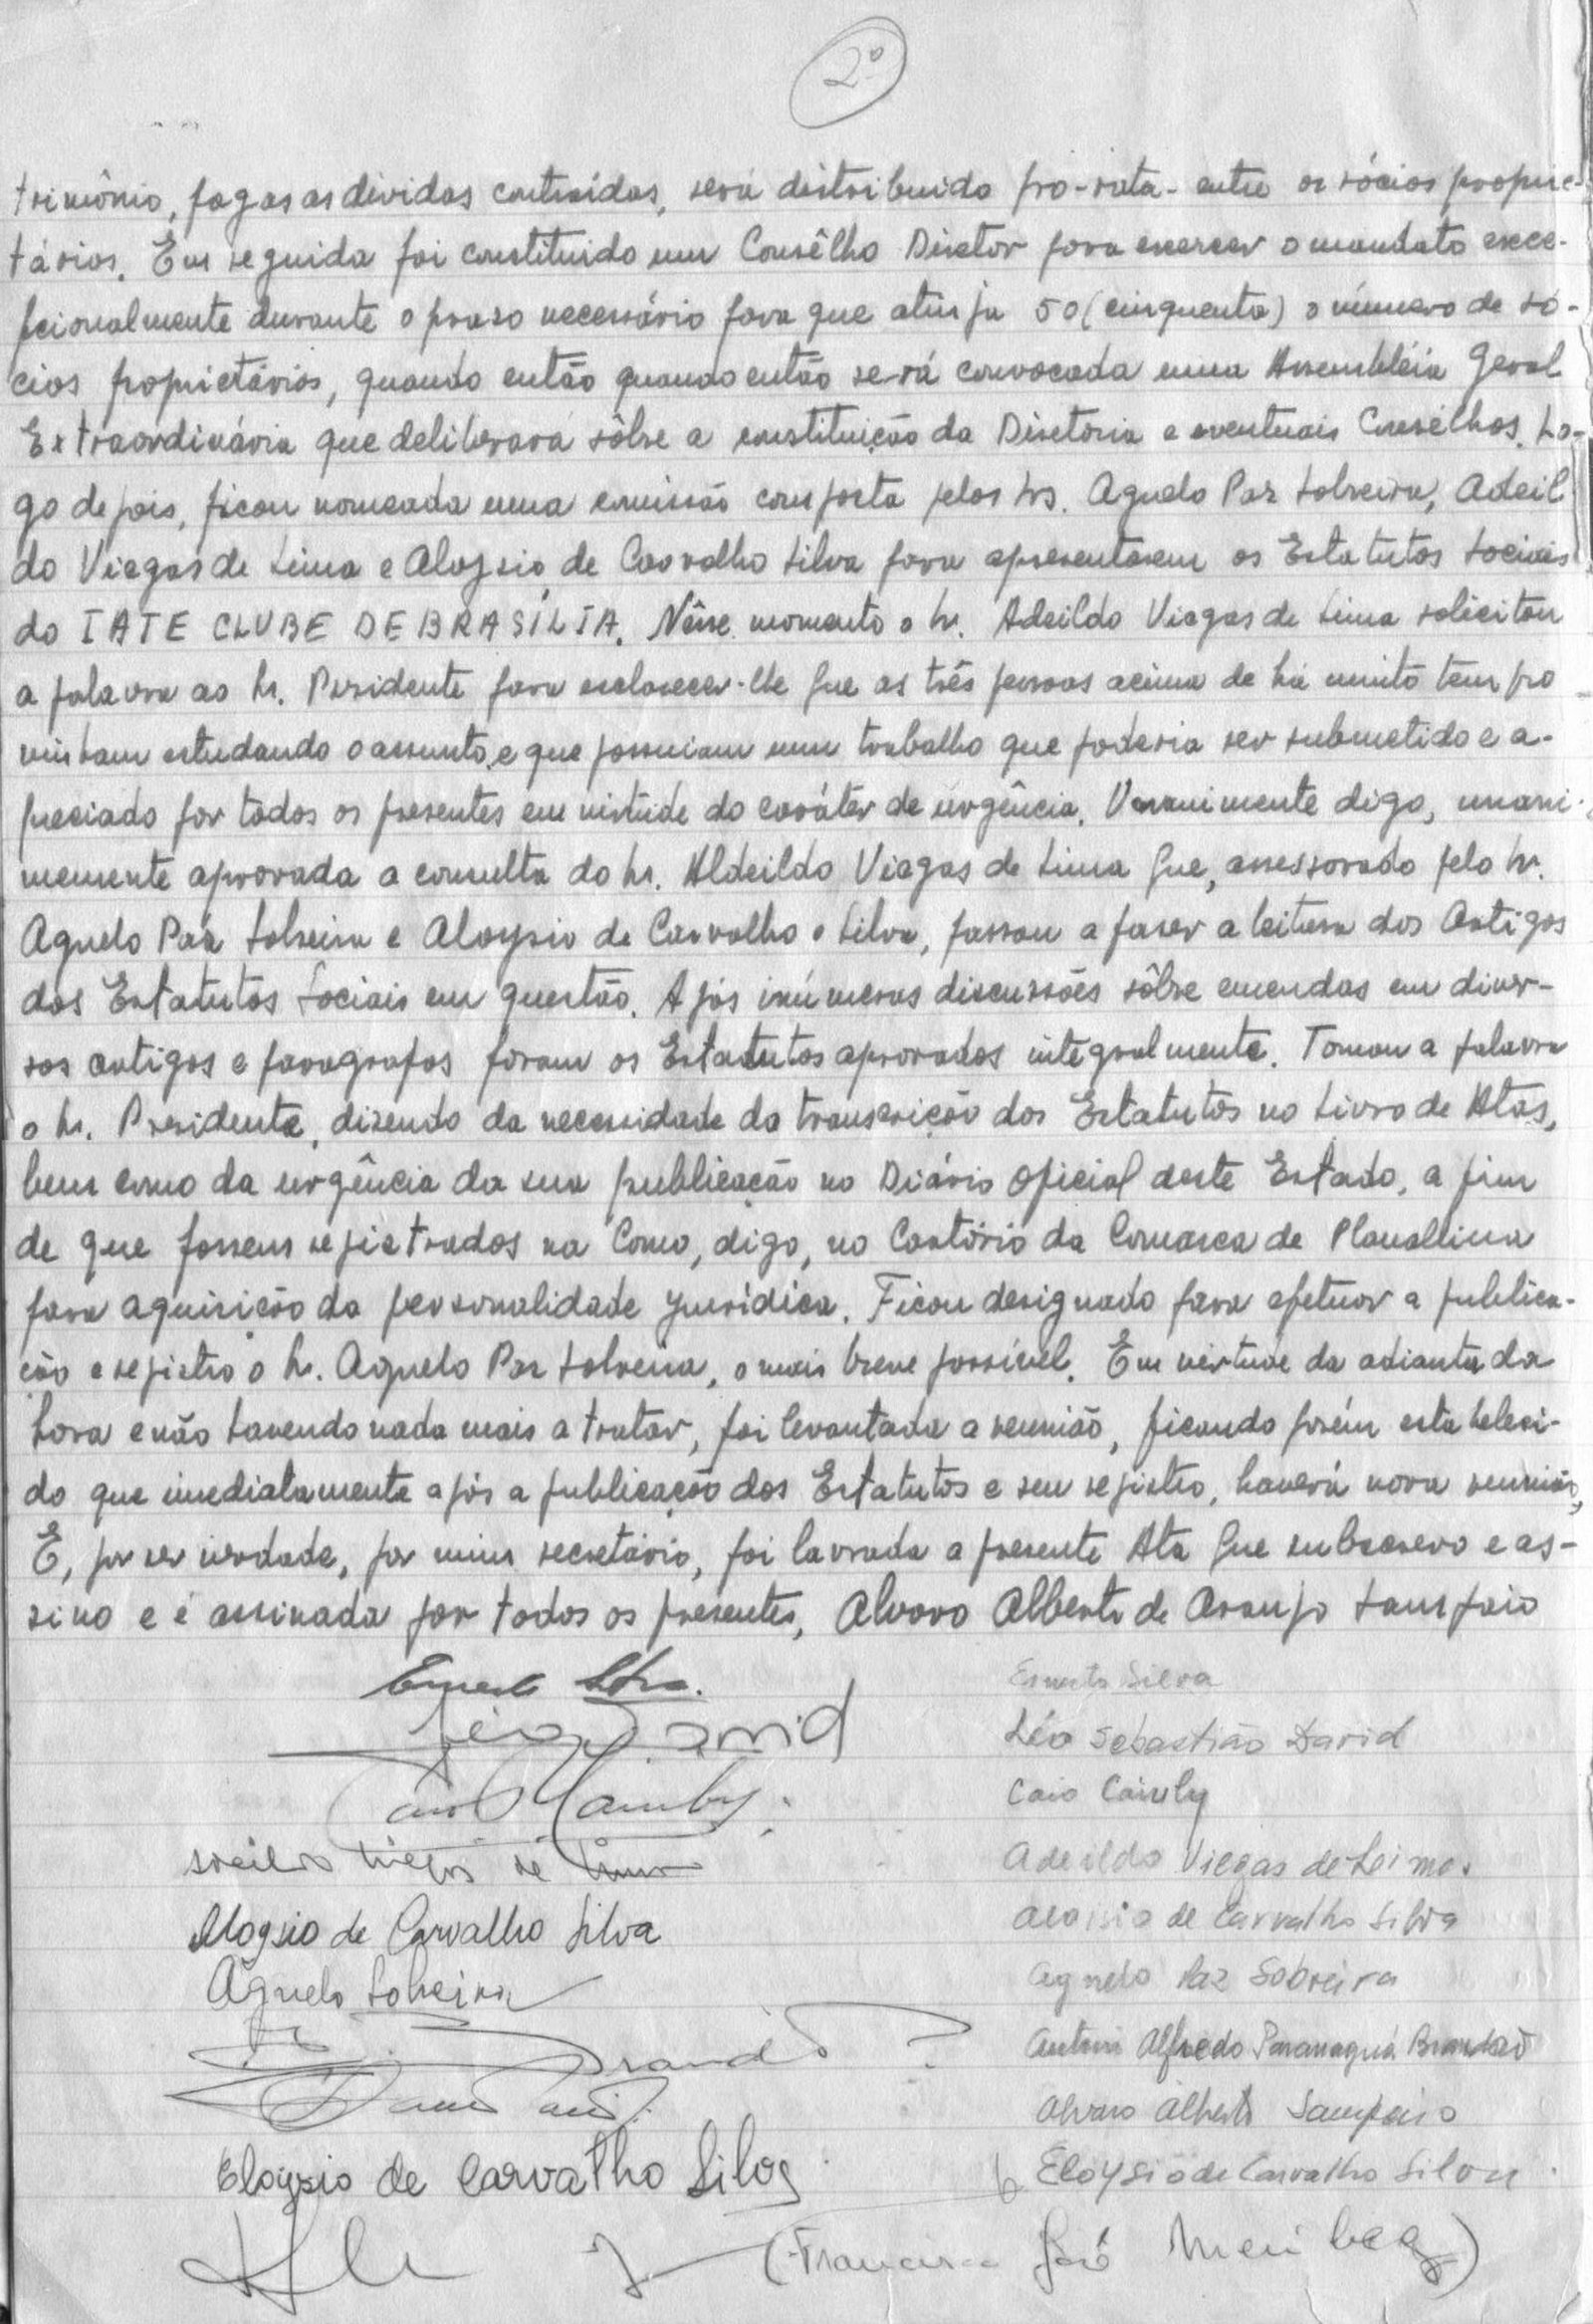 2º
trimônio, pagas as dívidas contraídas, será distribuido pro-rata- entre os sócios proprie-
tários. Em seguida foi constituido um Consêlho Diretor para exercer o mandato exce-
pcionalmente durante o praso necessário para que atinja 50 (cinquenta) o número de só-
cios proprietários, quando então quando então será convocada uma Assembléia Geral
Extraordinária que deliberará sôbre a constituição da Diretoria e eventuais Conselhos. Lo-
go depois, ficou nomeada uma comissão composta pelos Srs. Agnelo Paz Sobreira, Adeil
do Viegas de Lima e Aloysio de Carvalho Silva para apresentarem os Estatutos Sociais
do IATE CLUBE DE BRASÍLIA. Nêsse momento o Sr. Adeildo Viegas de Lima solicitou
a palavra ao Sr. Presidente para esclarecer-lhe que as três pessoas acima de há muito tempo
vinham estudando o assunto e que possuiam um trabalho que poderia ser submetido e a-
preciado por todos os presentes em virtude do caráter de urgência. Unanimente digo, unani-
memente aprovada a consulta do Sr. Aldeildo Viegas de Lima que, assessorado pelo Sr.
Agnelo Paz Sobreira e Aloysio de Carvalho e Silva, passou a fazer a leitura dos Artigos
dos Estatutos Sociais em questão. Após inúmeras discussões sôbre emendas em diver-
sos artigos e paragrafos foram os Estatutos aprovados integralmente. Tomou a palavra
o Sr. Presidente, dizendo da necessidade da transcrição dos Estatutos no Livro de Atas,
bem como da urgência da sua publicação no Diário Oficial deste Estado, a fim
de que fossem registrados na Coma, digo, no Cartório da Comarca de Planaltina
para aquisição da personalidade jurídica. Ficou designado para efetuar a publica-
ção e registro o Sr. Agnelo Paz Sobreira, o mais breve possível. Em virtude da adiantada
hora e não havendo nada mais a tratar, foi levantada a reunião, ficando porém estabeleci-
do que imediatamente após a publicação dos Estatutos e seu registro, haverá nova reunião,
E, por ser verdade, por mim secretário, foi lavrada a presente Ata que subscrevo e as-
sino e é assinada por todos os presentes, Alvaro Alberto de Araujo Sampaio
Ernesto Silva. Ernesto Silva
Léo David Léo Sebastião David
Cainby. Caio Cainby
Adeildo Viegas de Lima Adeildo Viegas de Leima.
Aloysio de Carvalho Silva Aloisio de Carvalho Silva
Agnelo Sobreira Agnelo Paz Sobreira
Brandão ? Antonio Alfredo Paranaguá Brandão
Alvaro Alberto Sampaio
Eloysio de Carvalho Silva Eloysio de Carvalho Silva
(Francisco José Meinberg)